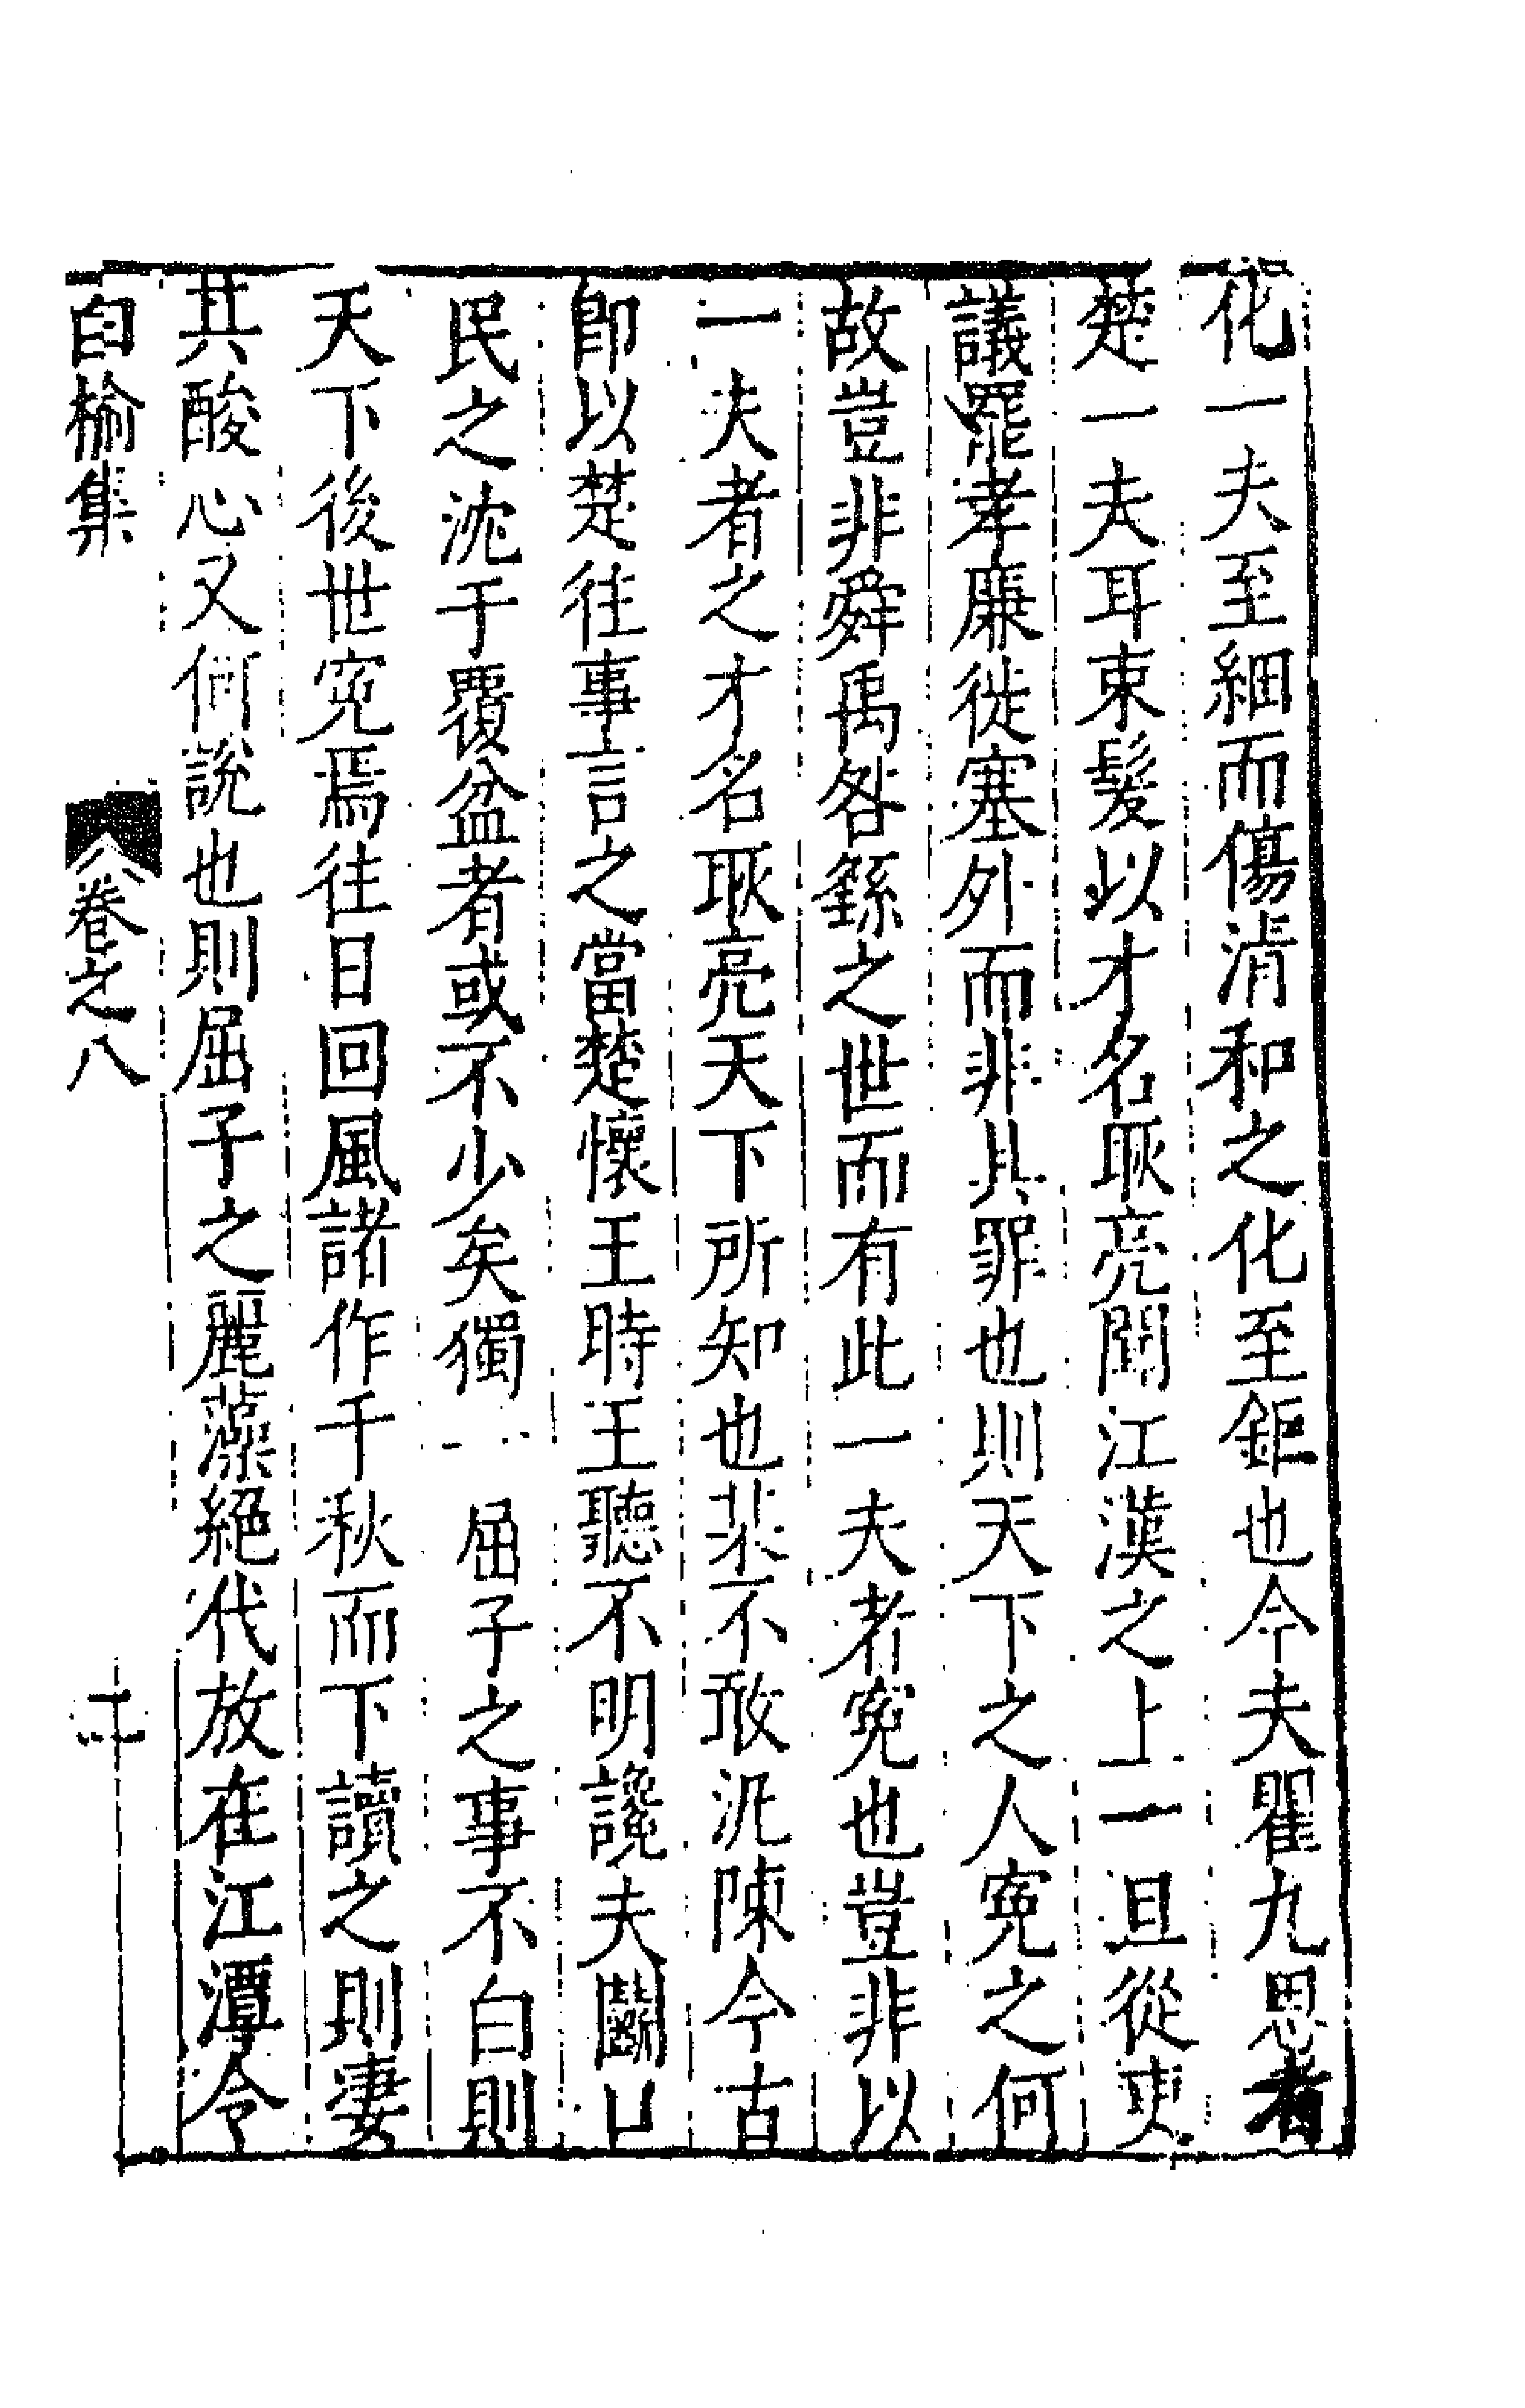 化一夫至細而傷清和之化至鉅也今夫瞿九思者
楚一夫耳束髮以才名耿亮聞江漢之上一旦從吏
議罷孝廉徙塞外而非其罪也則天下之人寃之何
故豈非舜禹咎繇之世而有此一夫者寃也豈非以
一夫者之才名耿亮天下所知也某不敢汎陳今古
即以楚往事言之當楚懷王時王聽不明讒夫鬭口
民之沈于覆盆者或不少矣獨 屈子之事不白則
天下後世寃焉徃日回風諸作千秋而下讀之則凄
其酸心又何說也則屈子之麗藻絕代放在江潭令
白榆集 卷之八